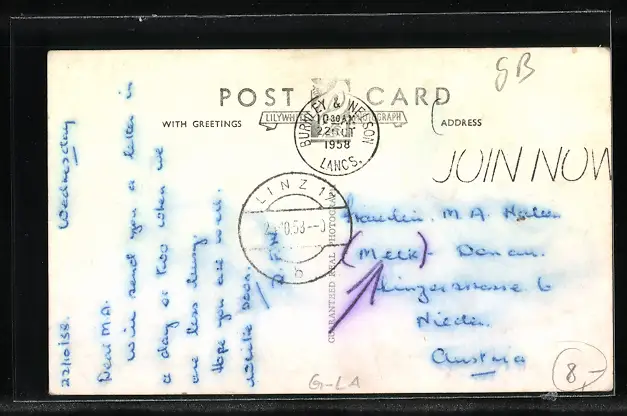 GB
POST CARD
WITH GREETINGS
ADDRESS
BURNLEY & NELSON
10-30AM
22 OCT
1958
LANCS.
JOIN NOW
LINZ 1
b
GUARANTEED REAL PHOTOGRAPH
22/10/58. Wednesday
Dear M.A.
Will send you a letter in
a day or two when we
are less busy.
Hope you are well.
Write soon.
M.A.
(Melk) - Donau.
Linzerstrasse 6
Nieder.
Austria
G-LA
8,-